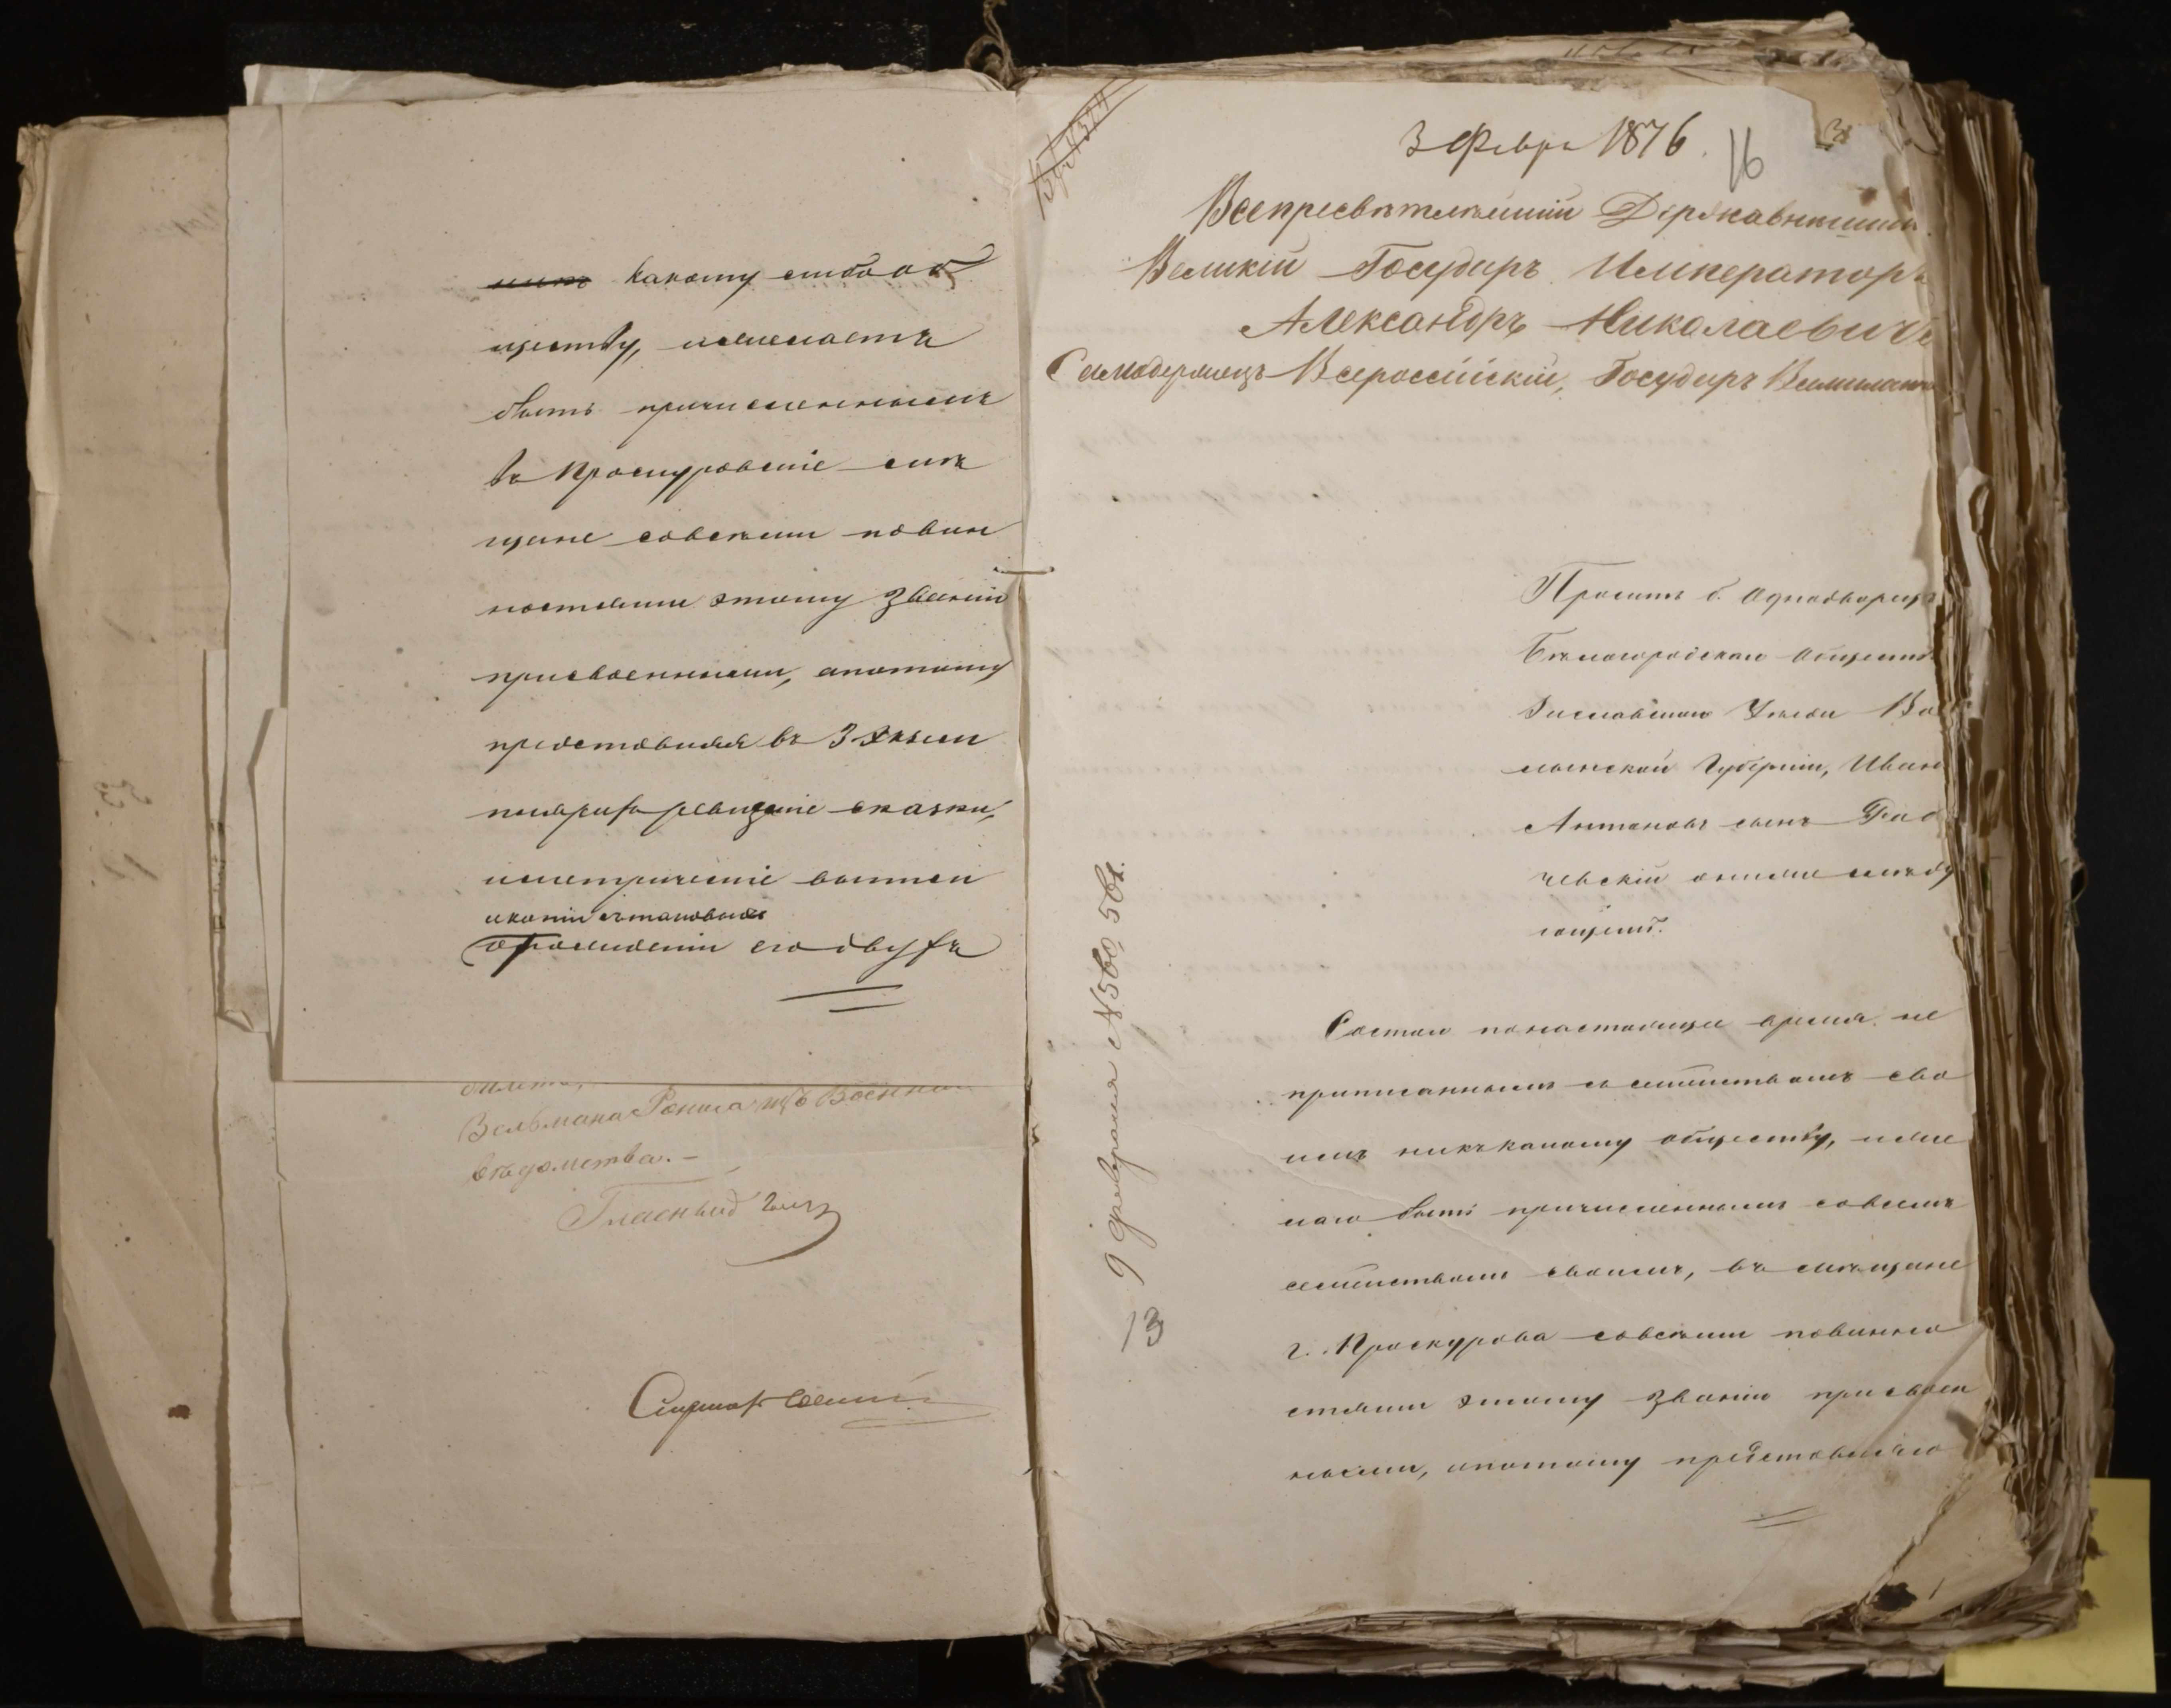 какому либо об
ществу, желаетъ
быть причисленнымъ
въ Проскуровскіе мѣ
щане совсѣми повин
ностями этому званію
присвоенными, апотому
представила въ 3 экзем
плярахъ ревизскіе сказки,
метрическіе выписи
икопіи съ
его двухъ
билета,
Вельмана Роника изъ Военна
вѣдомства. —
3 Февра 1876.
16
Всепресвѣтлѣйшій Державнѣйшій
Великій Государь Императоръ
Александръ Николаевичъ
Самодержецъ Всероссійскій, Государь Всемилост
Проситъ б. Однодворецъ
Бѣлогородскаго Обществ
Заславскаго Уѣзда Во
лынской Губерніи, Иванъ
Антоновъ сынъ
чевскій онижеслѣду
ющемъ.
Состоя понастоящее время не
приписаннымъ съ семействомъ сво
имъ никъкакому обществу, желаю
быть причисленнымъ совсемъ
семействомъ своимъ, въ мѣщане
г. Проскурова совсѣми повинно
стями этому званію присвоен
ными, апотому представляю
9 февраля №560, 561.
13